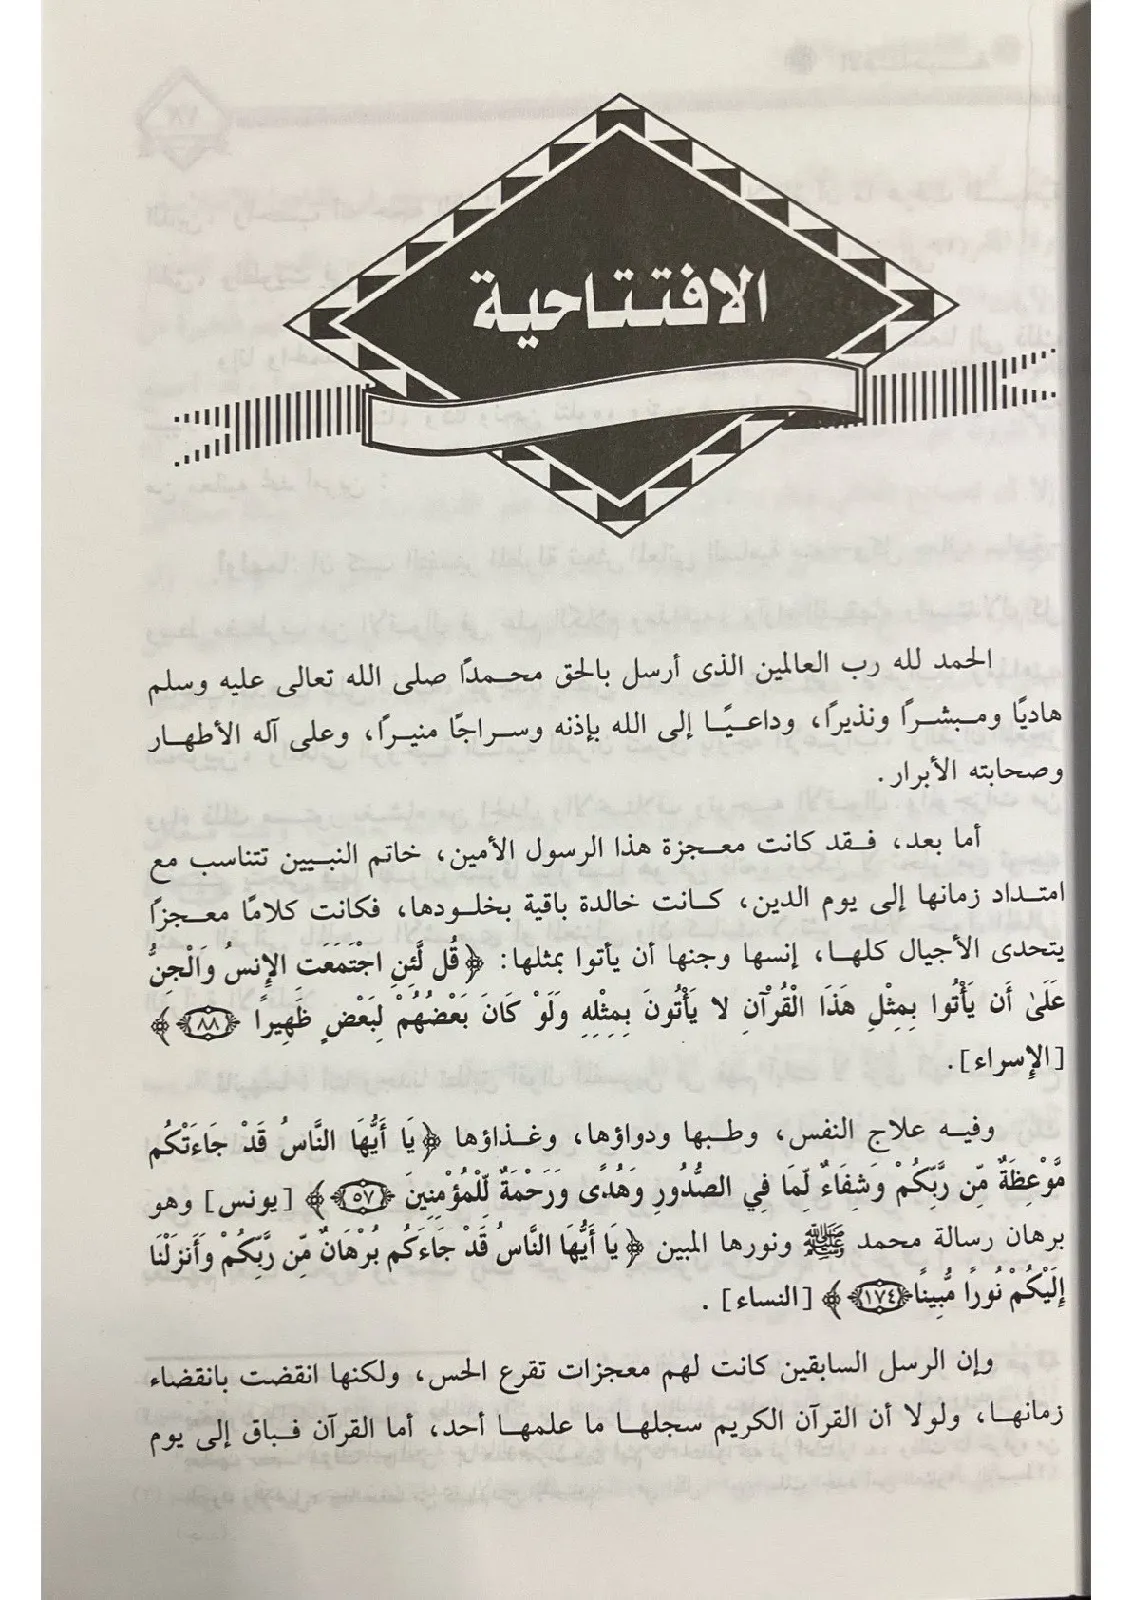 الافتتاحية
الحمد لله رب العالمين الذى أرسل بالحق محمدًا صلى الله تعالى عليه وسلم
هاديًا ومبشرًا ونذيرًا، وداعيًا إلى الله بإذنه وسراجًا منيرًا، وعلى آله الأطهار
وصحابته الأبرار.
أما بعد، فقد كانت معجزة هذا الرسول الأمين، خاتم النبيين تتناسب مع
امتداد زمانها إلى يوم الدين، كانت خالدة باقية بخلودها، فكانت كلامًا معجزًا
يتحدى الأجيال كلها، إنسها وجنها أن يأتوا بمثلها: ﴿قُل لَّئِنِ اجْتَمَعَتِ الإِنسُ وَالْجِنُّ
عَلَىٰ أَن يَأْتُوا بِمِثْلِ هَذَا الْقُرْآنِ لا يَأْتُونَ بِمِثْلِهِ وَلَوْ كَانَ بَعْضُهُمْ لِبَعْضٍ ظَهِيرًا ﴿٨٨﴾﴾
[الإسراء].
وفيه علاج النفس، وطبها ودواؤها، وغذاؤها ﴿يَا أَيُّهَا النَّاسُ قَدْ جَاءَتْكُم
مَّوْعِظَةٌ مِّن رَّبِّكُمْ وَشِفَاءٌ لِّمَا فِي الصُّدُورِ وَهُدًى وَرَحْمَةٌ لِّلْمُؤْمِنِينَ ﴿٥٧﴾﴾ [يونس] وهو
برهان رسالة محمد ﷺ ونورها المبين ﴿يَا أَيُّهَا النَّاسُ قَدْ جَاءَكُم بُرْهَانٌ مِّن رَّبِّكُمْ وَأَنزَلْنَا
إِلَيْكُمْ نُورًا مُّبِينًا ﴿١٧٤﴾﴾ [النساء].
وإن الرسل السابقين كانت لهم معجزات تقرع الحس، ولكنها انقضت بانقضاء
زمانها، ولولا أن القرآن الكريم سجلها ما علمها أحد، أما القرآن فباق إلى يوم